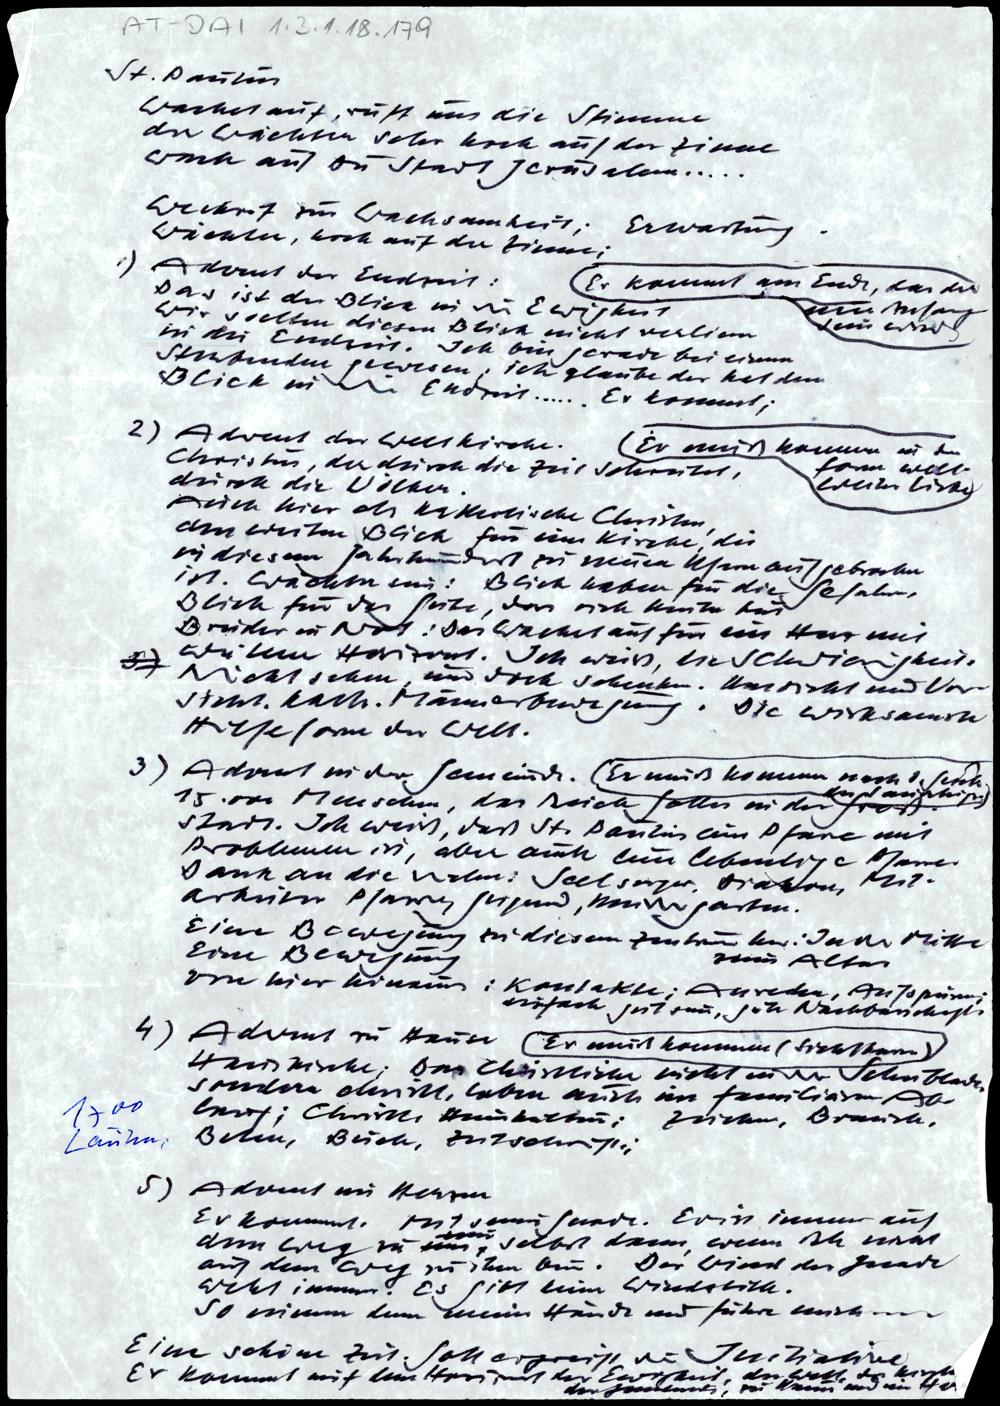 AT-DAI 1.3.1.18.179
St. Paulus
Wachet auf, ruft uns die Stimme
der Wächter sehr hoch auf der Zinne
wach auf du Stadt Jerusalem.....
Weckruf zur Wachsamheit; Erwartung.
Wächter, hoch auf der Zinne;
1) Advent der Endzeit: Er kommt am Ende, das der
neue Anfang
sein wird
Das ist der Blick in die Ewigkeit
Wir sollten diesen Blick nicht verlieren
in die Endzeit. Ich bin gerade bei einem
Sterbenden gewesen; ich glaube der hat den
Blick in die Endzeit..... Er kommt;
2) Advent der Weltkirche. Er muß kommen in der
Form welt-
weiter Liebe
Christus, der durch die Zeit schreitet,
durch die Völker.
Auch hier als katholische Christen,
den weiten Blick für eine Kirche, die
in diesem Jahrhundert zu neuen Ufern aufgebrochen
ist. Wächter sein: Blick haben für die Gefahr,
Blick für das Gute, das sich heute tut
Brüder in Not: Das Wachet auf für ein Herz mit
3) weitem Horizont. Ich weiß, die Schwierigkeit.
Nicht sehen, und doch schenken. Umsicht und Vor-
sicht. Kath. Männerbewegung. Die wirksamste
Hilfsform der Welt.
3) Advent in der Gemeinde. (Er muß kommen nach
15.000 Menschen, das Reich Gottes in der Groß-
stadt. Ich weiß, daß St. Paulus eine Pfarre mit
Problemen ist, aber auch eine lebendige Pfarre
Dank an die vielen: Seelsorger, Diakon, Mit-
arbeiter Pfarre, Jugend, Kindergarten.
Eine Bewegung zu diesem Zentrum her: In der Mitte
zum Altar
Eine Bewegung
von hier hinaus: Kontakte; Anreden, Aufspüren;
einfach gut sein, gute Nachbarschaft
4) Advent zu Hause (Er muß kommen (sichtbar))
Hauskirche; Das Christliche nicht in der Schublade
sondern christl. Leben auch im familiären Ab-
lauf; Christl. Hauskultur; Zeichen, Brauch,
Beten, Buch, Zeitschrift;
17.00
Läuten;
5) Advent im Herzen
Er kommt. Mit seiner Gnade. Er ist immer auf
dem Weg zu uns, selbst dann, wenn ich nicht
auf dem Weg zu ihm bin. Der Wind der Gnade
weht immer. Es gibt keine Windstille.
So nimm denn meine Hände und führe mich
Eine schöne Zeit. Gott ergreift die Initiative
Er kommt mit dem Horizont der Ewigkeit, der Welt, der Kirche
der Gemeinde, zu Hause und im